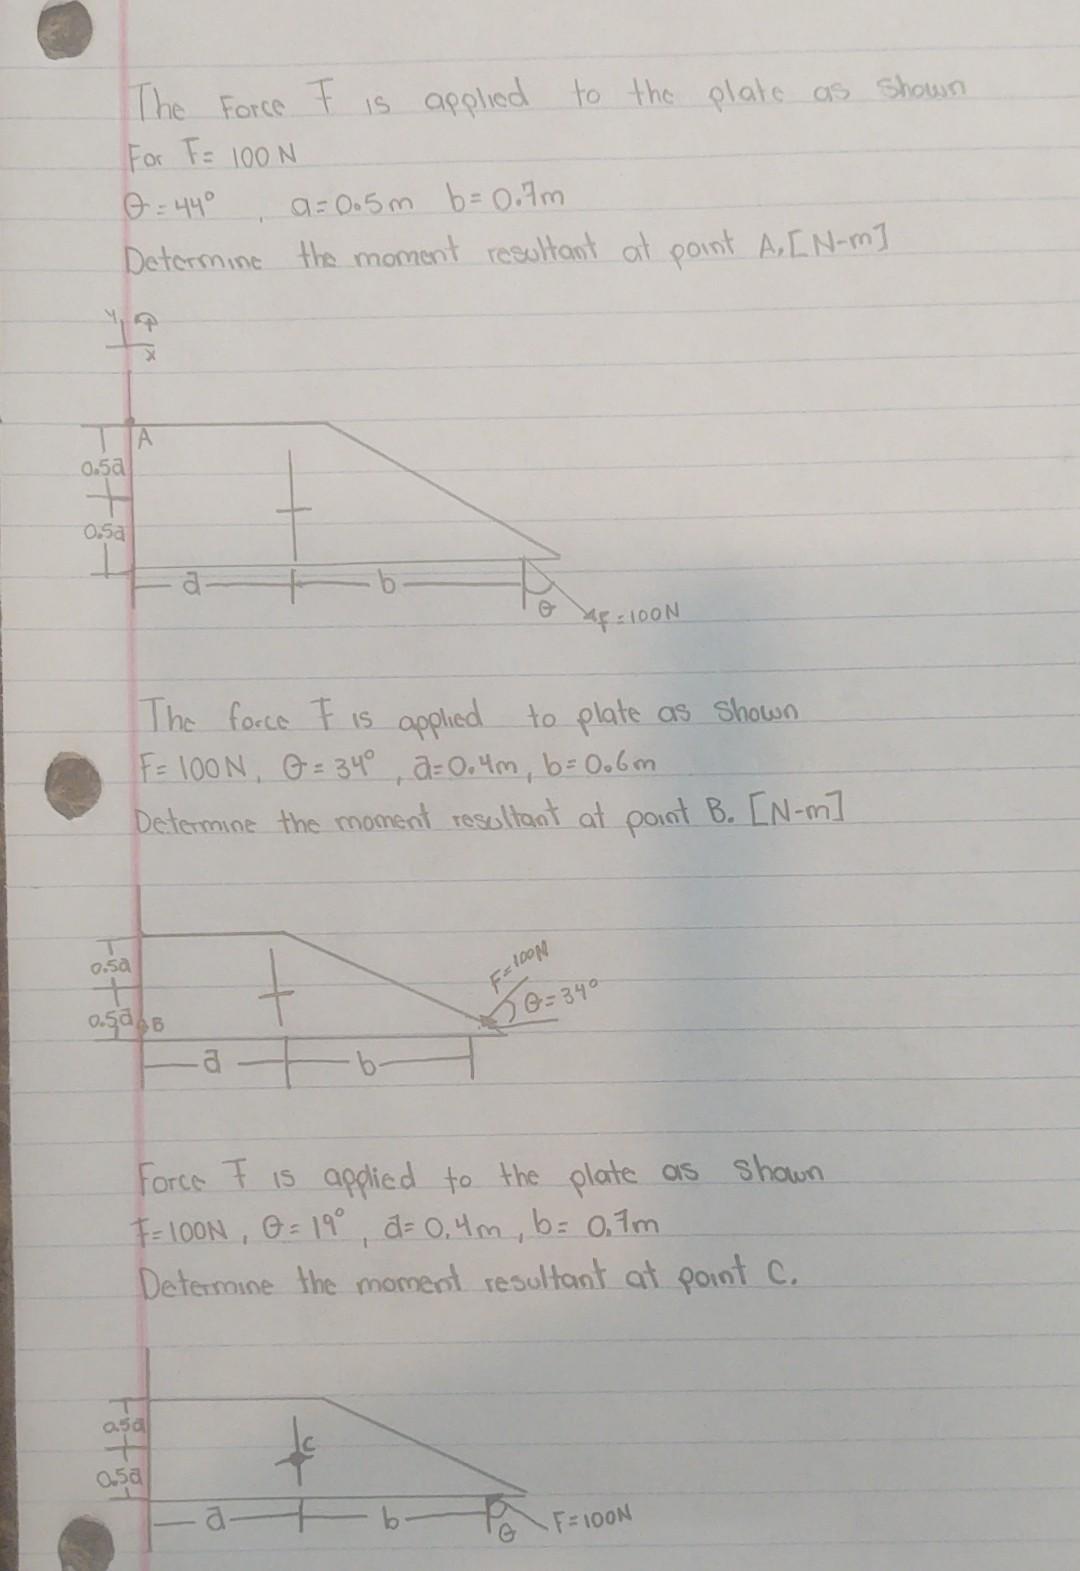 The Force F is applied to the plate as shown
For F= 100 N
θ=44° , a=0.5m b=0.7m
Determine the moment resultant at point A. [N-m]
y
x
A
0.5a
0.5a
a
b
θ
F=100N
The force F is applied to plate as shown
F=100N, θ=34°, a=0.4m, b=0.6m
Determine the moment resultant at point B. [N-m]
F=100N
0.5a
θ=34°
0.5a B
a
b
Force F is applied to the plate as shown
F=100N, θ=19°, a=0.4m, b= 0.7m
Determine the moment resultant at point C.
0.5a
C
0.5a
a
b
θ
F=100N